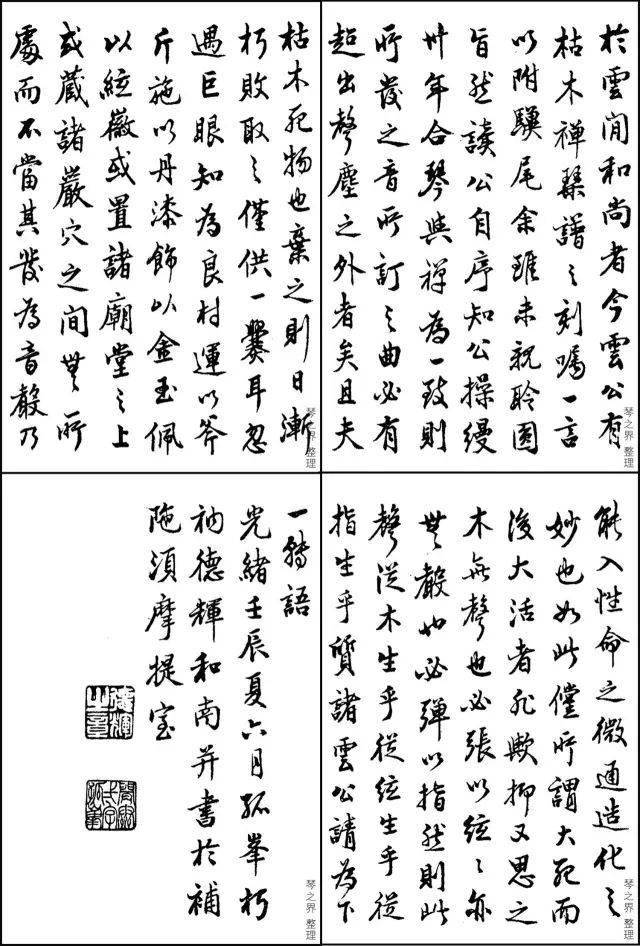 於雲閒和尚者今雲公有
枯木禪琹譜之刻囑一言
以附驥尾余雖未親聆圓
旨然讀公自序知公操縵
卅年合琴與禪為一致則
所發之音所訂之曲必有
超出聲塵之外者矣且夫
琴之界 整理
枯木死物也棄之則日漸
朽敗取之僅供一爨耳忽
遇巨眼知為良材運以斧
斤施以丹漆飾以金玉佩
以絃徽或置諸廟堂之上
或藏諸巖穴之間無所
處而不當其發為音聲乃
琴之界 整理
能入性命之微通造化之
妙也如此儻所謂大死而
後大活者非歟抑又思之
木無聲也必張以絃絃亦
無聲也必彈以指然則此
聲從木生乎從絃生乎從
指生乎質諸雲公請為下
琴之界 整理
一轉語
光緒壬辰夏六月孤峯朽
衲德輝和南并書於補
陁須摩提室
德輝之章
琴之界 整理